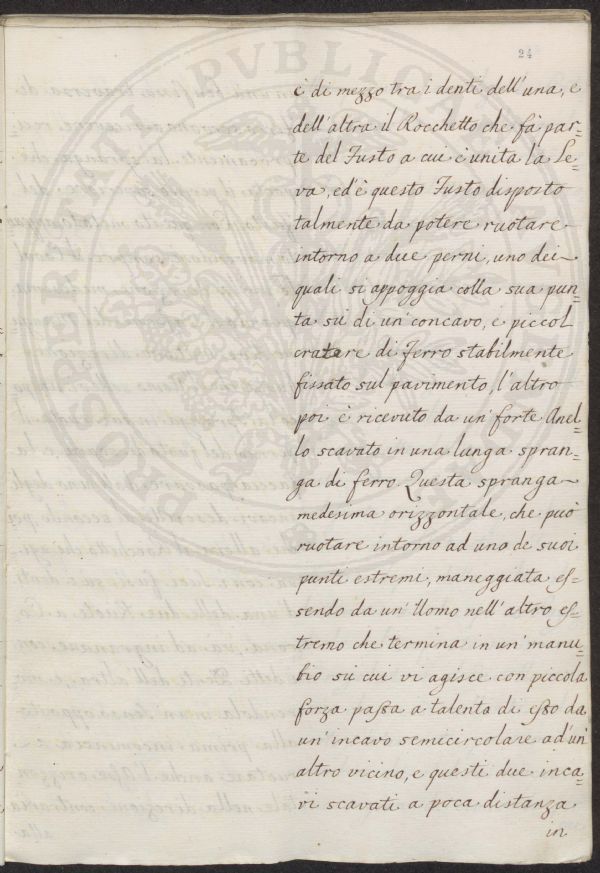 24
è di mezzo tra i denti dell'una, e
dell'altra il Rocchetto che fà par=
te del Fusto a cui è unita la Le=
va, ed è questo Fusto disposto
talmente da potere ruotare
intorno a due perni, uno dei
quali si appoggia colla sua pun=
ta sù di un'concavo, e piccol
cratere di Ferro stabilmente
fissato sul pavimento, l'altro
poi è ricevuto da un'forte Anel=
lo scavato in una lunga spran=
ga di ferro. Questa spranga
medesima orizzontale, che può
ruotare intorno ad uno de suoi
punti estremi, maneggiata es=
sendo da un'Uomo nell'altro es=
tremo che termina in un'manu=
bio sù cui vi agisce con piccola
forza passa a talento di esso da
un'incavo semicircolare ad'un'
altro vicino, e questi due inca=
vi scavati a poca distanza
in